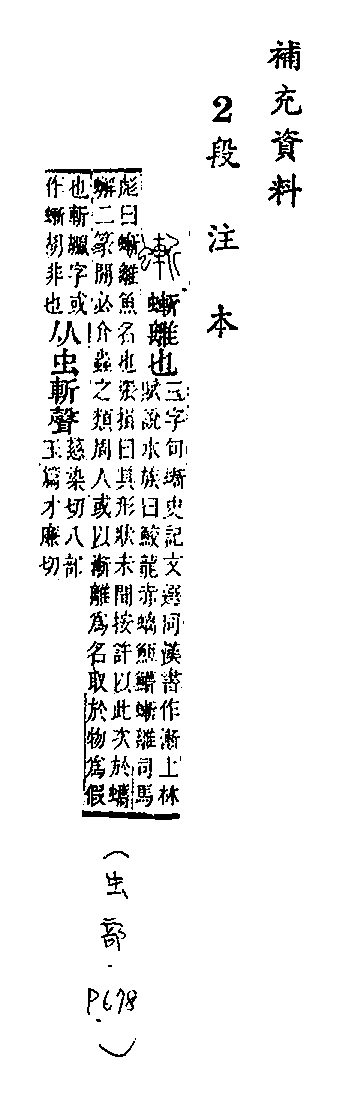 補充資料
2段注本
螹離也
三字句螹史記文選同漢書作漸上林
賦說水族曰鮫龍赤螭䱭䲛螹離司馬
彪曰螹離魚名也張揖曰其形狀未聞按許以此次於蠵
蠏二篆閒必介蟲之類周人或以漸離爲名取於物爲假
也斬字或
作螹胡非也
从虫斬聲
慈染切八部
玉篇才廉切
(虫部.P.678)